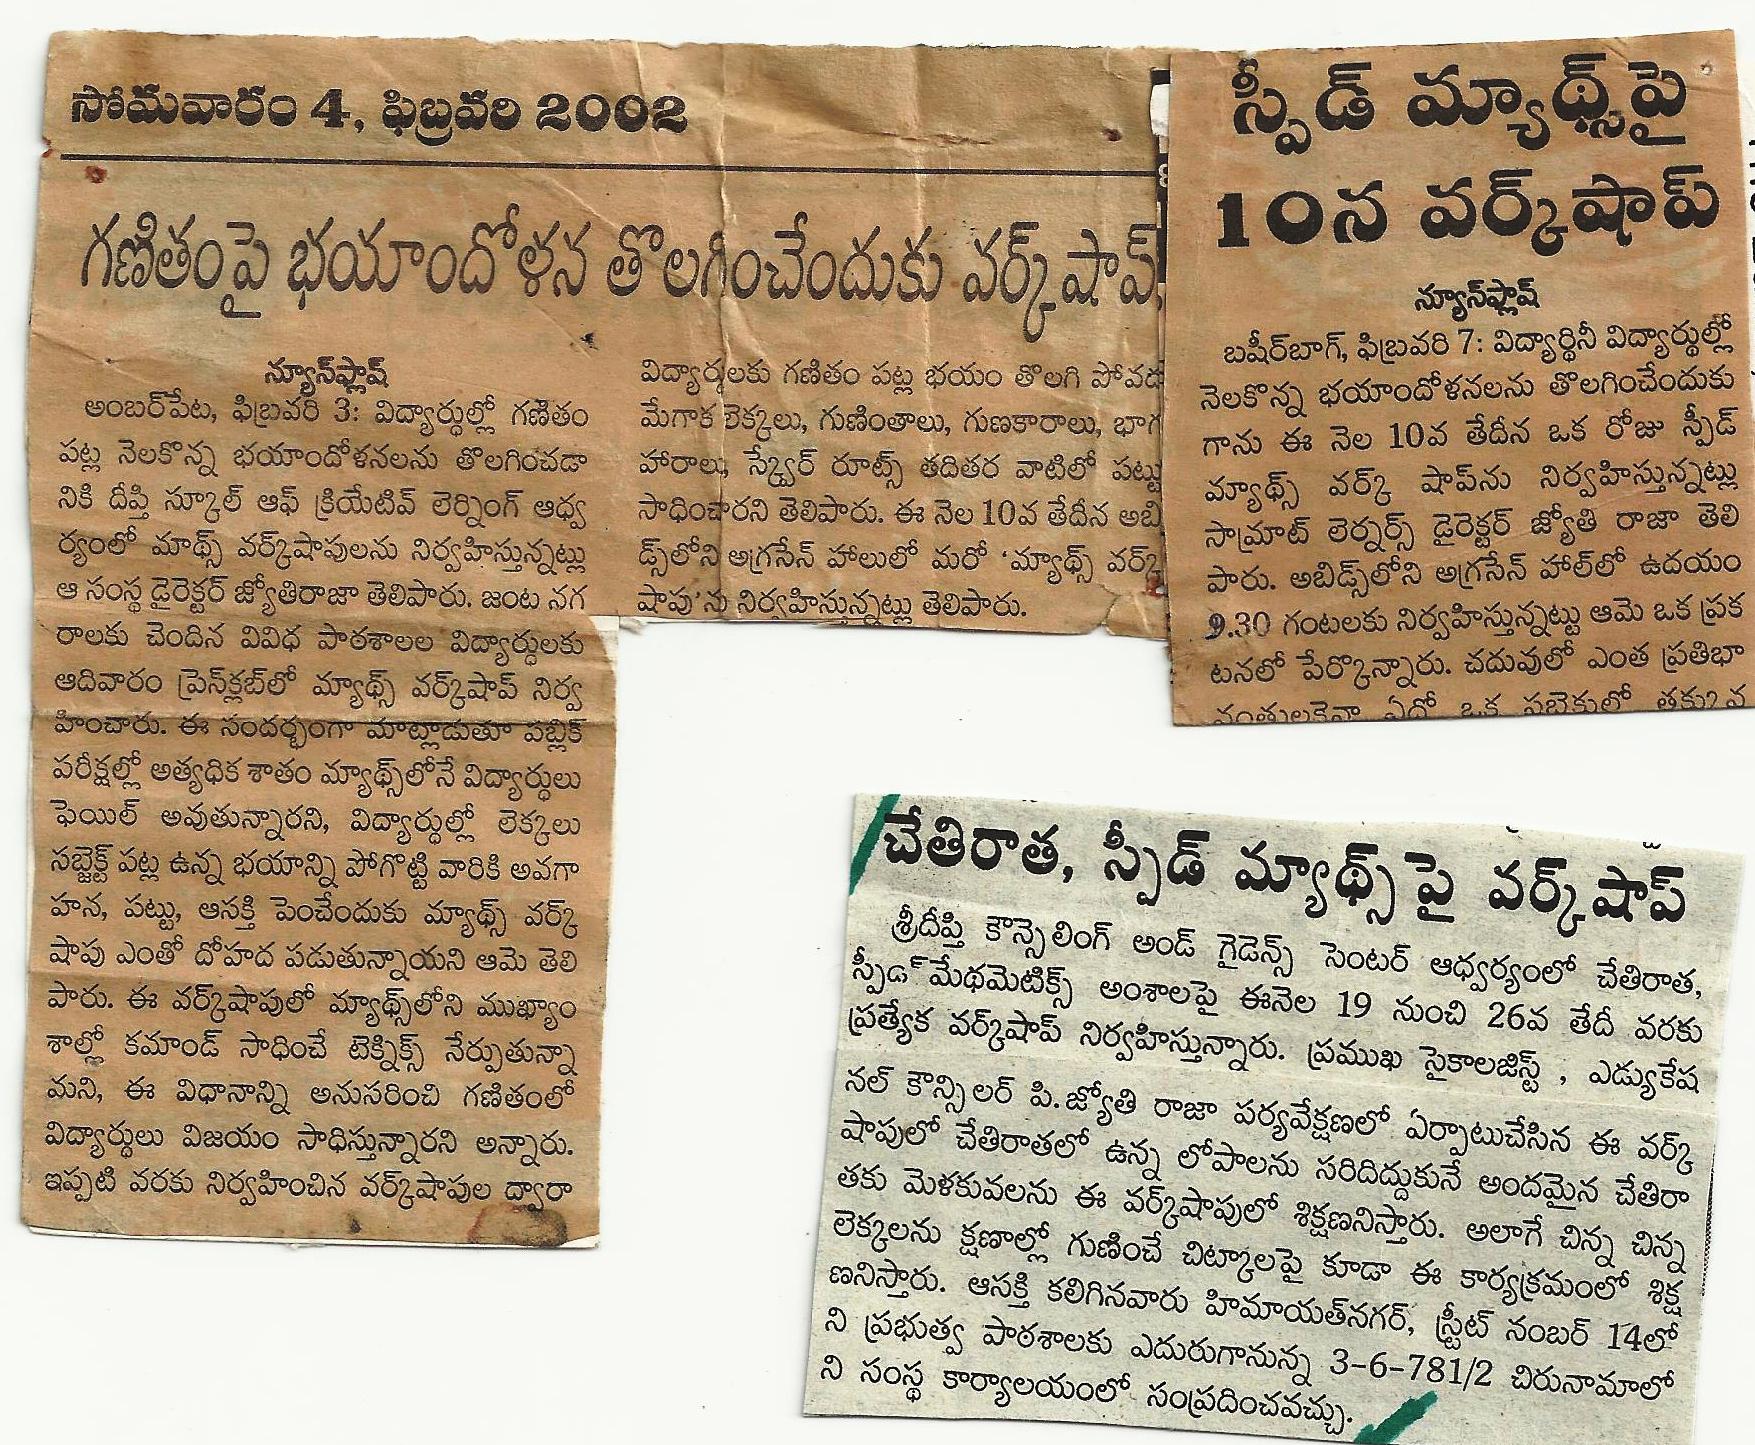 సోమవారం 4, ఫిబ్రవరి 2002
గణితంపై భయాందోళన తొలగించేందుకు వర్క్‌షాప్
న్యూస్‌ఫ్లాష్
అంబర్‌పేట, ఫిబ్రవరి 3: విద్యార్థుల్లో గణితం
పట్ల నెలకొన్న భయాందోళనలను తొలగించడా
నికి దీప్తి స్కూల్ ఆఫ్ క్రియేటివ్ లెర్నింగ్ ఆధ్వ
ర్యంలో మాథ్స్ వర్క్‌షాపులను నిర్వహిస్తున్నట్లు
ఆ సంస్థ డైరెక్టర్ జ్యోతిరాజా తెలిపారు. జంట నగ
రాలకు చెందిన వివిధ పాఠశాలల విద్యార్థులకు
ఆదివారం ప్రెస్‌క్లబ్‌లో మ్యాథ్స్ వర్క్‌షాప్ నిర్వ
హించారు. ఈ సందర్భంగా మాట్లాడుతూ పబ్లిక్
పరీక్షల్లో అత్యధిక శాతం మ్యాథ్స్‌లోనే విద్యార్థులు
ఫెయిల్ అవుతున్నారని, విద్యార్థుల్లో లెక్కలు
సబ్జెక్ట్ పట్ల ఉన్న భయాన్ని పోగొట్టి వారికి అవగా
హన, పట్టు, ఆసక్తి పెంచేందుకు మ్యాథ్స్ వర్క్
షాపు ఎంతో దోహద పడుతున్నాయని ఆమె తెలి
పారు. ఈ వర్క్‌షాపులో మ్యాథ్స్‌లోని ముఖ్యాం
శాల్లో కమాండ్ సాధించే టెక్నిక్స్ నేర్పుతున్నా
మని, ఈ విధానాన్ని అనుసరించి గణితంలో
విద్యార్థులు విజయం సాధిస్తున్నారని అన్నారు.
ఇప్పటి వరకు నిర్వహించిన వర్క్‌షాపుల ద్వారా
విద్యార్థులకు గణితం పట్ల భయం తొలగి పోవడ
మేగాక లెక్కలు, గుణింతాలు, గుణకారాలు, భాగ
హారాలు, స్క్వేర్ రూట్స్ తదితర వాటిలో పట్టు
సాధించారని తెలిపారు. ఈ నెల 10వ తేదీన అబి
డ్స్‌లోని అగ్రసేన్ హాలులో మరో 'మ్యాథ్స్ వర్క్
షాపు'ను నిర్వహిస్తున్నట్లు తెలిపారు.
స్పీడ్ మ్యాథ్స్‌పై
10న వర్క్‌షాప్
న్యూస్‌ఫ్లాష్
బషీర్‌బాగ్, ఫిబ్రవరి 7: విద్యార్థినీ విద్యార్థుల్లో
నెలకొన్న భయాందోళనలను తొలగించేందుకు
గాను ఈ నెల 10వ తేదీన ఒక రోజు స్పీడ్
మ్యాథ్స్ వర్క్ షాప్‌ను నిర్వహిస్తున్నట్లు
సామ్రాట్ లెర్నర్స్ డైరెక్టర్ జ్యోతి రాజా తెలి
పారు. అబిడ్స్‌లోని అగ్రసేన్ హాల్‌లో ఉదయం
9.30 గంటలకు నిర్వహిస్తున్నట్టు ఆమె ఒక ప్రక
టనలో పేర్కొన్నారు. చదువులో ఎంత ప్రతిభా
వంతులకైనా ఏదో ఒక సబ్జెక్టులో తక్కువ
చేతిరాత, స్పీడ్ మ్యాథ్స్ పై వర్క్‌షాప్
శ్రీదీప్తి కౌన్సెలింగ్ అండ్ గైడెన్స్ సెంటర్ ఆధ్వర్యంలో చేతిరాత,
స్పీడ్ మేథమెటిక్స్ అంశాలపై ఈనెల 19 నుంచి 26వ తేదీ వరకు
ప్రత్యేక వర్క్‌షాప్ నిర్వహిస్తున్నారు. ప్రముఖ సైకాలజిస్ట్ , ఎడ్యుకేష
నల్ కౌన్సిలర్ పి.జ్యోతి రాజా పర్యవేక్షణలో ఏర్పాటుచేసిన ఈ వర్క్
షాపులో చేతిరాతలో ఉన్న లోపాలను సరిదిద్దుకునే అందమైన చేతిరా
తకు మెళకువలను ఈ వర్క్‌షాపులో శిక్షణనిస్తారు. అలాగే చిన్న చిన్న
లెక్కలను క్షణాల్లో గుణించే చిట్కాలపై కూడా ఈ కార్యక్రమంలో శిక్ష
ణనిస్తారు. ఆసక్తి కలిగినవారు హిమాయత్‌నగర్, స్ట్రీట్ నంబర్ 14లో
ని ప్రభుత్వ పాఠశాలకు ఎదురుగానున్న 3-6-781/2 చిరునామాలో
ని సంస్థ కార్యాలయంలో సంప్రదించవచ్చు.